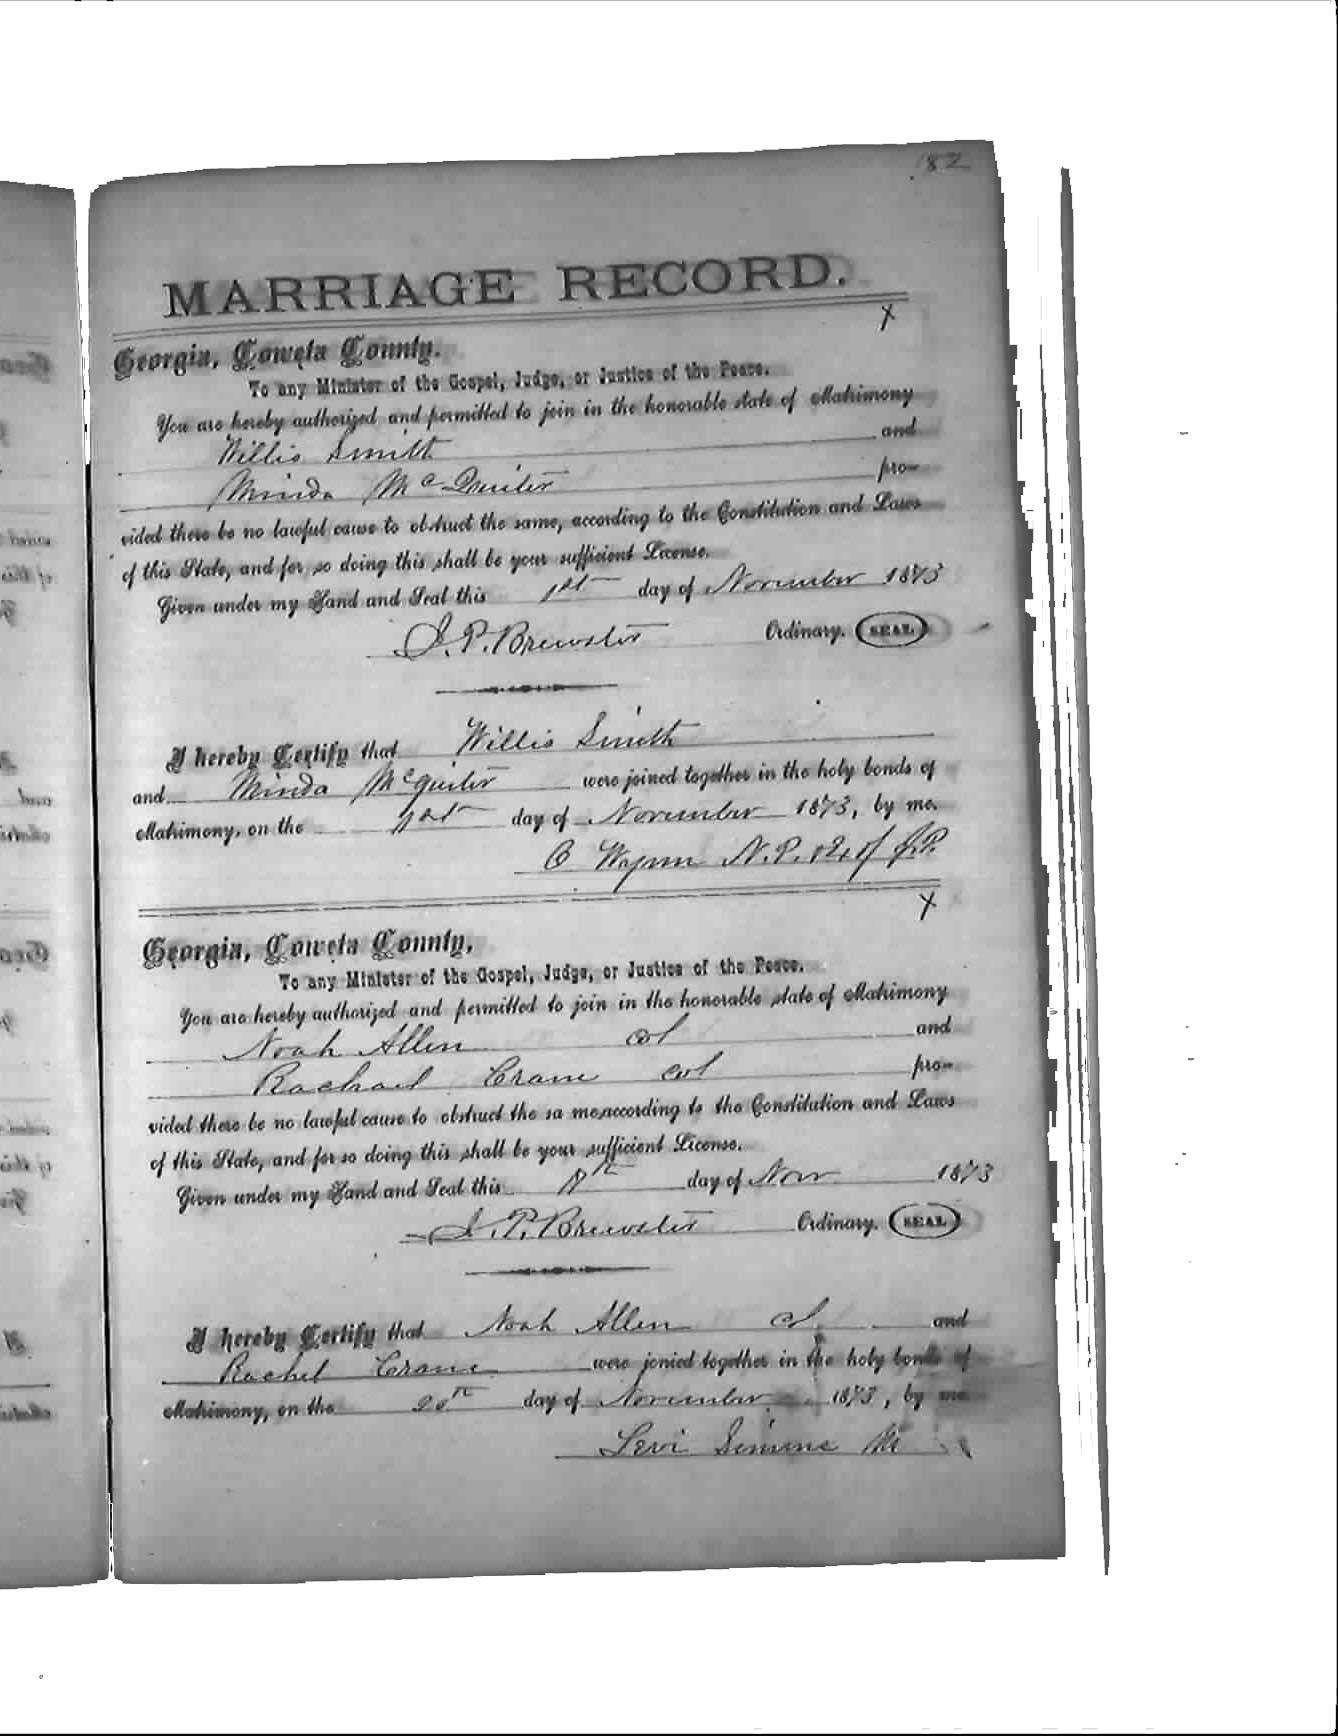 82
MARRIAGE RECORD.
X
Georgia, Coweta County.
To any Minister of the Gospel, Judge, or Justice of the Peace.
You are hereby authorized and permitted to join in the honorable state of Matrimony
Willis Smith and
Minda McQuiter pro-
vided there be no lawful cause to obstruct the same, according to the Constitution and Laws
of this State, and for so doing this shall be your sufficient License.
Given under my Hand and Seal this 1st day of November 1873
J. P. Brewster Ordinary. SEAL
I hereby Certify that Willis Smith
and Minda McQuiter were joined together in the holy bonds of
Matrimony, on the 1st day of November 1873, by me.
N.P. J.P.
X
Georgia, Coweta County,
To any Minister of the Gospel, Judge, or Justice of the Peace.
You are hereby authorized and permitted to join in the honorable state of Matrimony
Noah Allen col and
Rachael Crane col pro-
vided there be no lawful cause to obstruct the sa me,according to the Constitution and Laws
of this State, and for so doing this shall be your sufficient License.
Given under my Hand and Seal this day of Nov 1873
J. P. Brewster Ordinary. SEAL
I hereby Certify that Noah Allen col and
Rachel Crane were jonied together in the holy bonds of
Matrimony, on the 20th day of November 1873, by me
Levi Simms